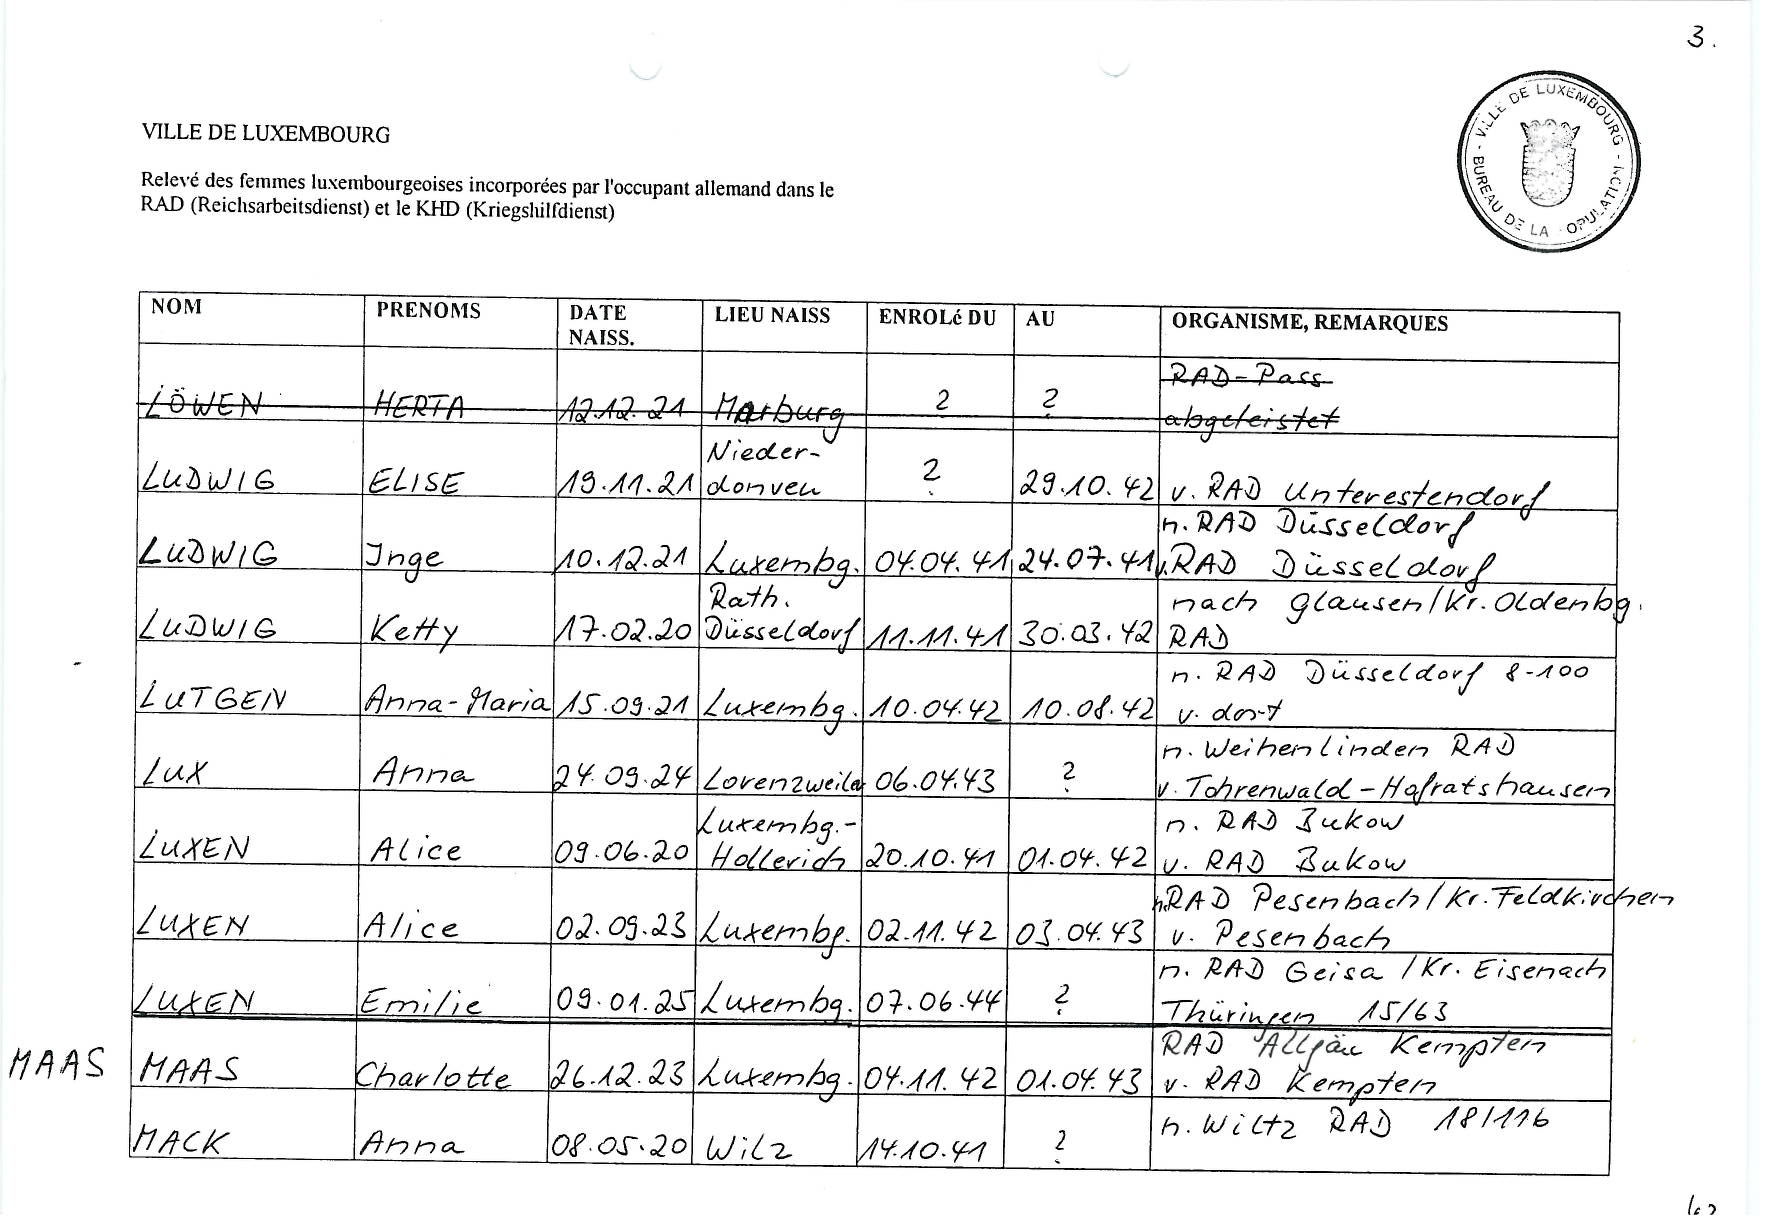 3.
VILLE DE LUXEMBOURG - BUREAU DE LA POPULATION -
VILLE DE LUXEMBOURG
Relevé des femmes luxembourgeoises incorporées par l'occupant allemand dans le
RAD (Reichsarbeitsdienst) et le KHD (Kriegshilfdienst)
NOM PRENOMS DATE NAISS. LIEU NAISS ENROLé DU AU ORGANISME, REMARQUES
RAD-Pass
LÖWEN HERTA 12.12.21 Marburg ? ? abgeleistet
Nieder-
LUDWIG ELISE 19.11.21 donven ? 29.10.42 v. RAD Unterestendorf
n. RAD Düsseldorf
LUDWIG Inge 10.12.21 Luxembg. 04.04.41 24.07.41 v. RAD Düsseldorf
Rath. nach Glausen/Kr. Oldenbg.
LUDWIG Ketty 17.02.20 Düsseldorf 11.11.41 30.03.42 RAD
n. RAD Düsseldorf 8-100
LUTGEN Anna-Maria 15.09.21 Luxembg. 10.04.42 10.08.42 v. dort
n. Weihenlinden RAD
LUX Anna 24.09.24 Lorenzweiler 06.04.43 ? v. Tohrenwald-Hofratshausen
Luxembg.- n. RAD Bukow
LUXEN Alice 09.06.20 Hollerich 20.10.41 01.04.42 v. RAD Bukow
n. RAD Pesenbach/Kr. Feldkirchen
LUXEN Alice 02.09.23 Luxembg. 02.11.42 03.04.43 v. Pesenbach
n. RAD Geisa /Kr. Eisenach
LUXEN Emilie 09.01.25 Luxembg. 07.06.44 ? Thüringen 15/63
RAD Allgäu Kempten
MAAS MAAS Charlotte 26.12.23 Luxembg. 04.11.42 01.04.43 v. RAD Kempten
n. Wiltz RAD 18/116
MACK Anna 08.05.20 Wilz 14.10.41 ?